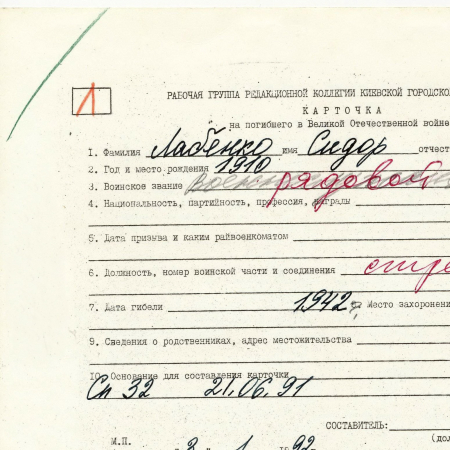 Л
РАБОЧАЯ ГРУППА РЕДАКЦИОННОЙ КОЛЛЕГИИ КИЕВСКОЙ ГОРОДСКО
КАРТОЧКА
на погибшего в Великой Отечественной войне
1. Фамилия Лабенко имя Сидор отчест
2. Год и место рождения 1910
3. Воинское звание рядовой
4. Национальность, партийность, профессия, награды
5. Дата призыва и каким райвоенкоматом
6. Должность, номер воинской части и соединения стре
7. Дата гибели 1942 Место захоронени
9. Сведения о родственниках, адрес местожительства
10. Основание для составления карточки
Сп 32 21.06.91
СОСТАВИТЕЛЬ:
(дол
М.П.